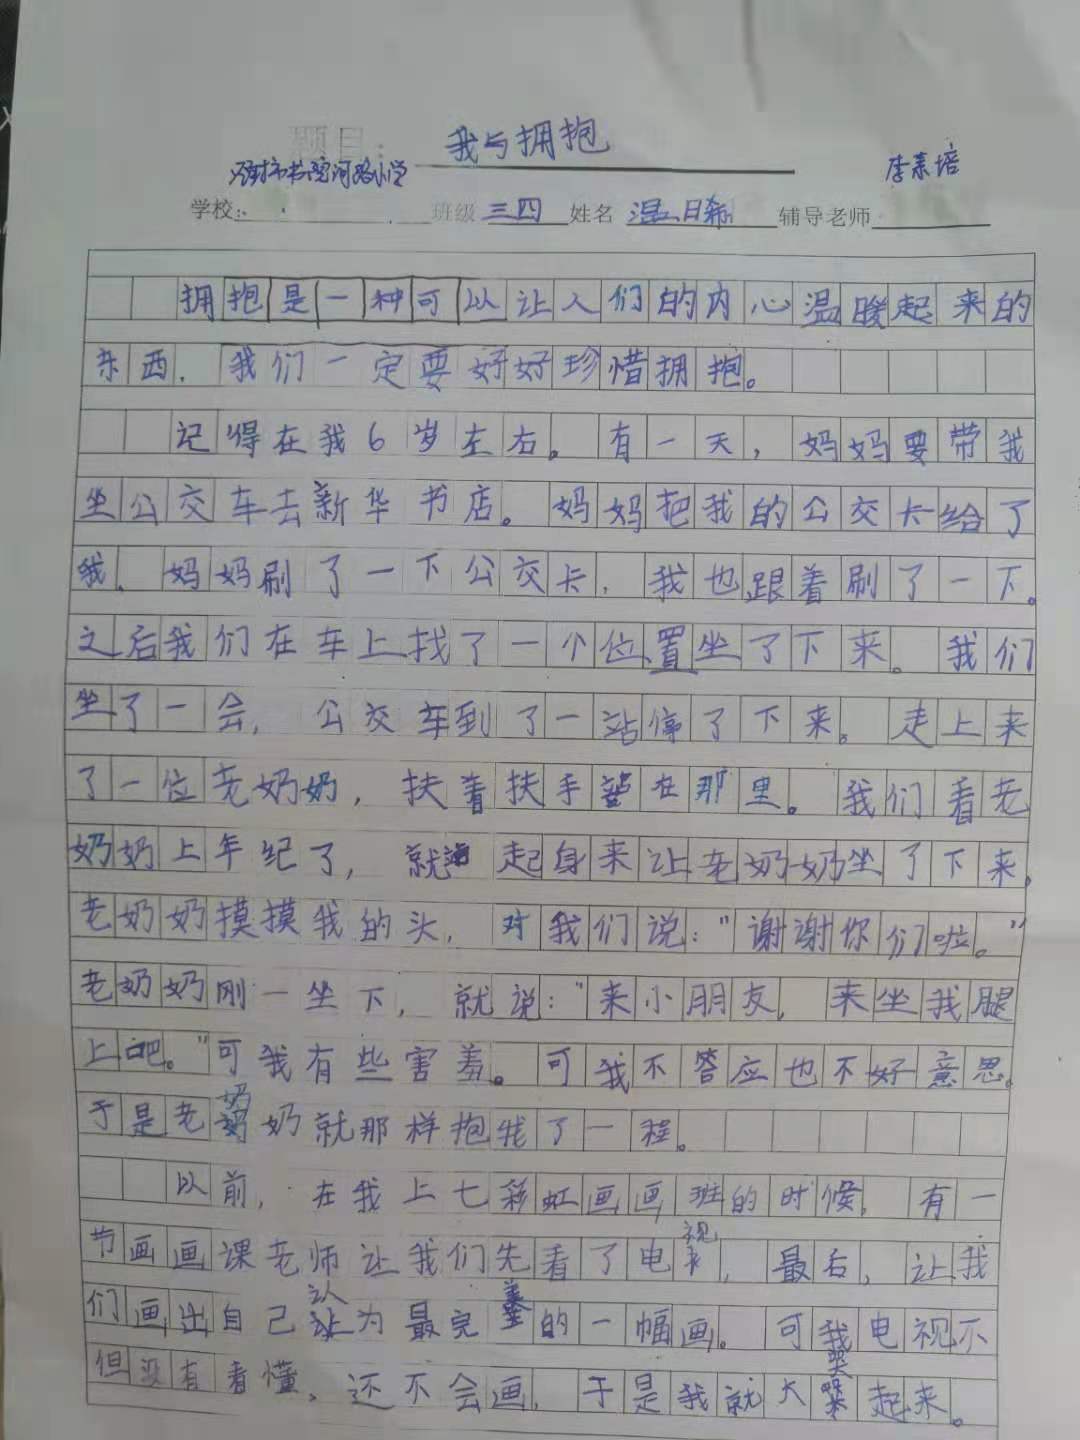 题目：我与拥抱
书院河路小学 李素培
学校： 班级 三四 姓名 温日希 辅导老师
拥抱是一种可以让人们的内心温暖起来的
东西，我们一定要好好珍惜拥抱。
记得在我6岁左右。有一天，妈妈要带我
坐公交车去新华书店。妈妈把我的公交卡给了
我，妈妈刷了一下公交卡，我也跟着刷了一下。
之后我们在车上找了一个位置坐了下来。我们
坐了一会，公交车到了一站停了下来。走上来
了一位老奶奶，扶着扶手站在那里。我们看老
奶奶上年纪了，就起身来让老奶奶坐了下来，
老奶奶摸摸我的头，对我们说：“谢谢你们啦。”
老奶奶刚一坐下，就说：“来小朋友，来坐我腿
上吧。”可我有些害羞。可我不答应也不好意思。
于是老奶奶就那样抱我了一程。
以前，在我上七彩虹画画班的时候，有一
节画画课老师让我们先看了电视，最后，让我
们画出自己认为最完美的一幅画。可我电视不
但没有看懂，还不会画，于是我就大哭起来。